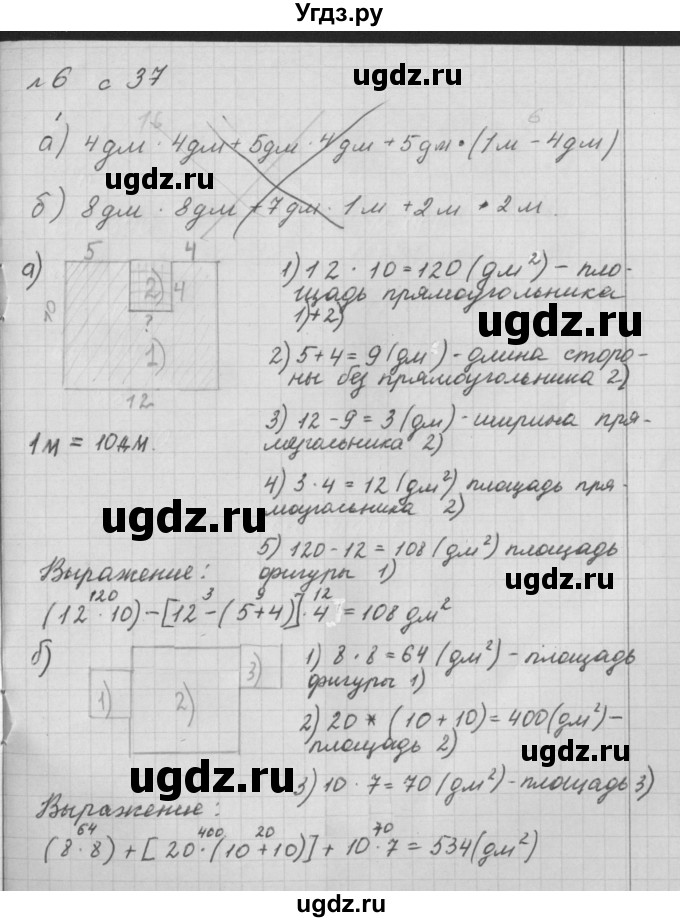 Угдз.ру
№6 с 37
ugdz.ru
а) 4дм · 4дм + 5дм · 4дм + 5дм · (1м - 4дм)
ugdz.ru
б) 8дм · 8дм + 7дм · 1м + 2м · 2м.
а) 5 4
2) 4
10
?
1)
12
1м = 10дм.
1) 12 · 10 = 120 (дм²) - пло-
щадь прямоугольника
1)+2)
ugdz.ru
2) 5+4 = 9 (дм) - длина сторо-
ны без прямоугольника 2)
3) 12 - 9 = 3 (дм) - ширина пря-
моугольника 2)
4) 3 · 4 = 12 (дм²) площадь пря-
моугольника 2)
ugdz.ru
5) 120 - 12 = 108 (дм²) площадь
фигуры 1)
ugdz.ru
Выражение:
120 3 9 12
(12 · 10) - [12 - (5+4)] · 4 = 108 дм²
б)
1) 2) 3)
1) 8 · 8 = 64 (дм²) - площадь
фигуры 1)
ugdz.ru
2) 20 * (10 + 10) = 400 (дм²) -
площадь 2)
ugdz.ru
3) 10 · 7 = 70 (дм²) - площадь 3)
Выражение:
ugdz.ru
64 400 20 70
(8 · 8) + [20 · (10 + 10)] + 10 · 7 = 534 (дм²)
ugdz.ru